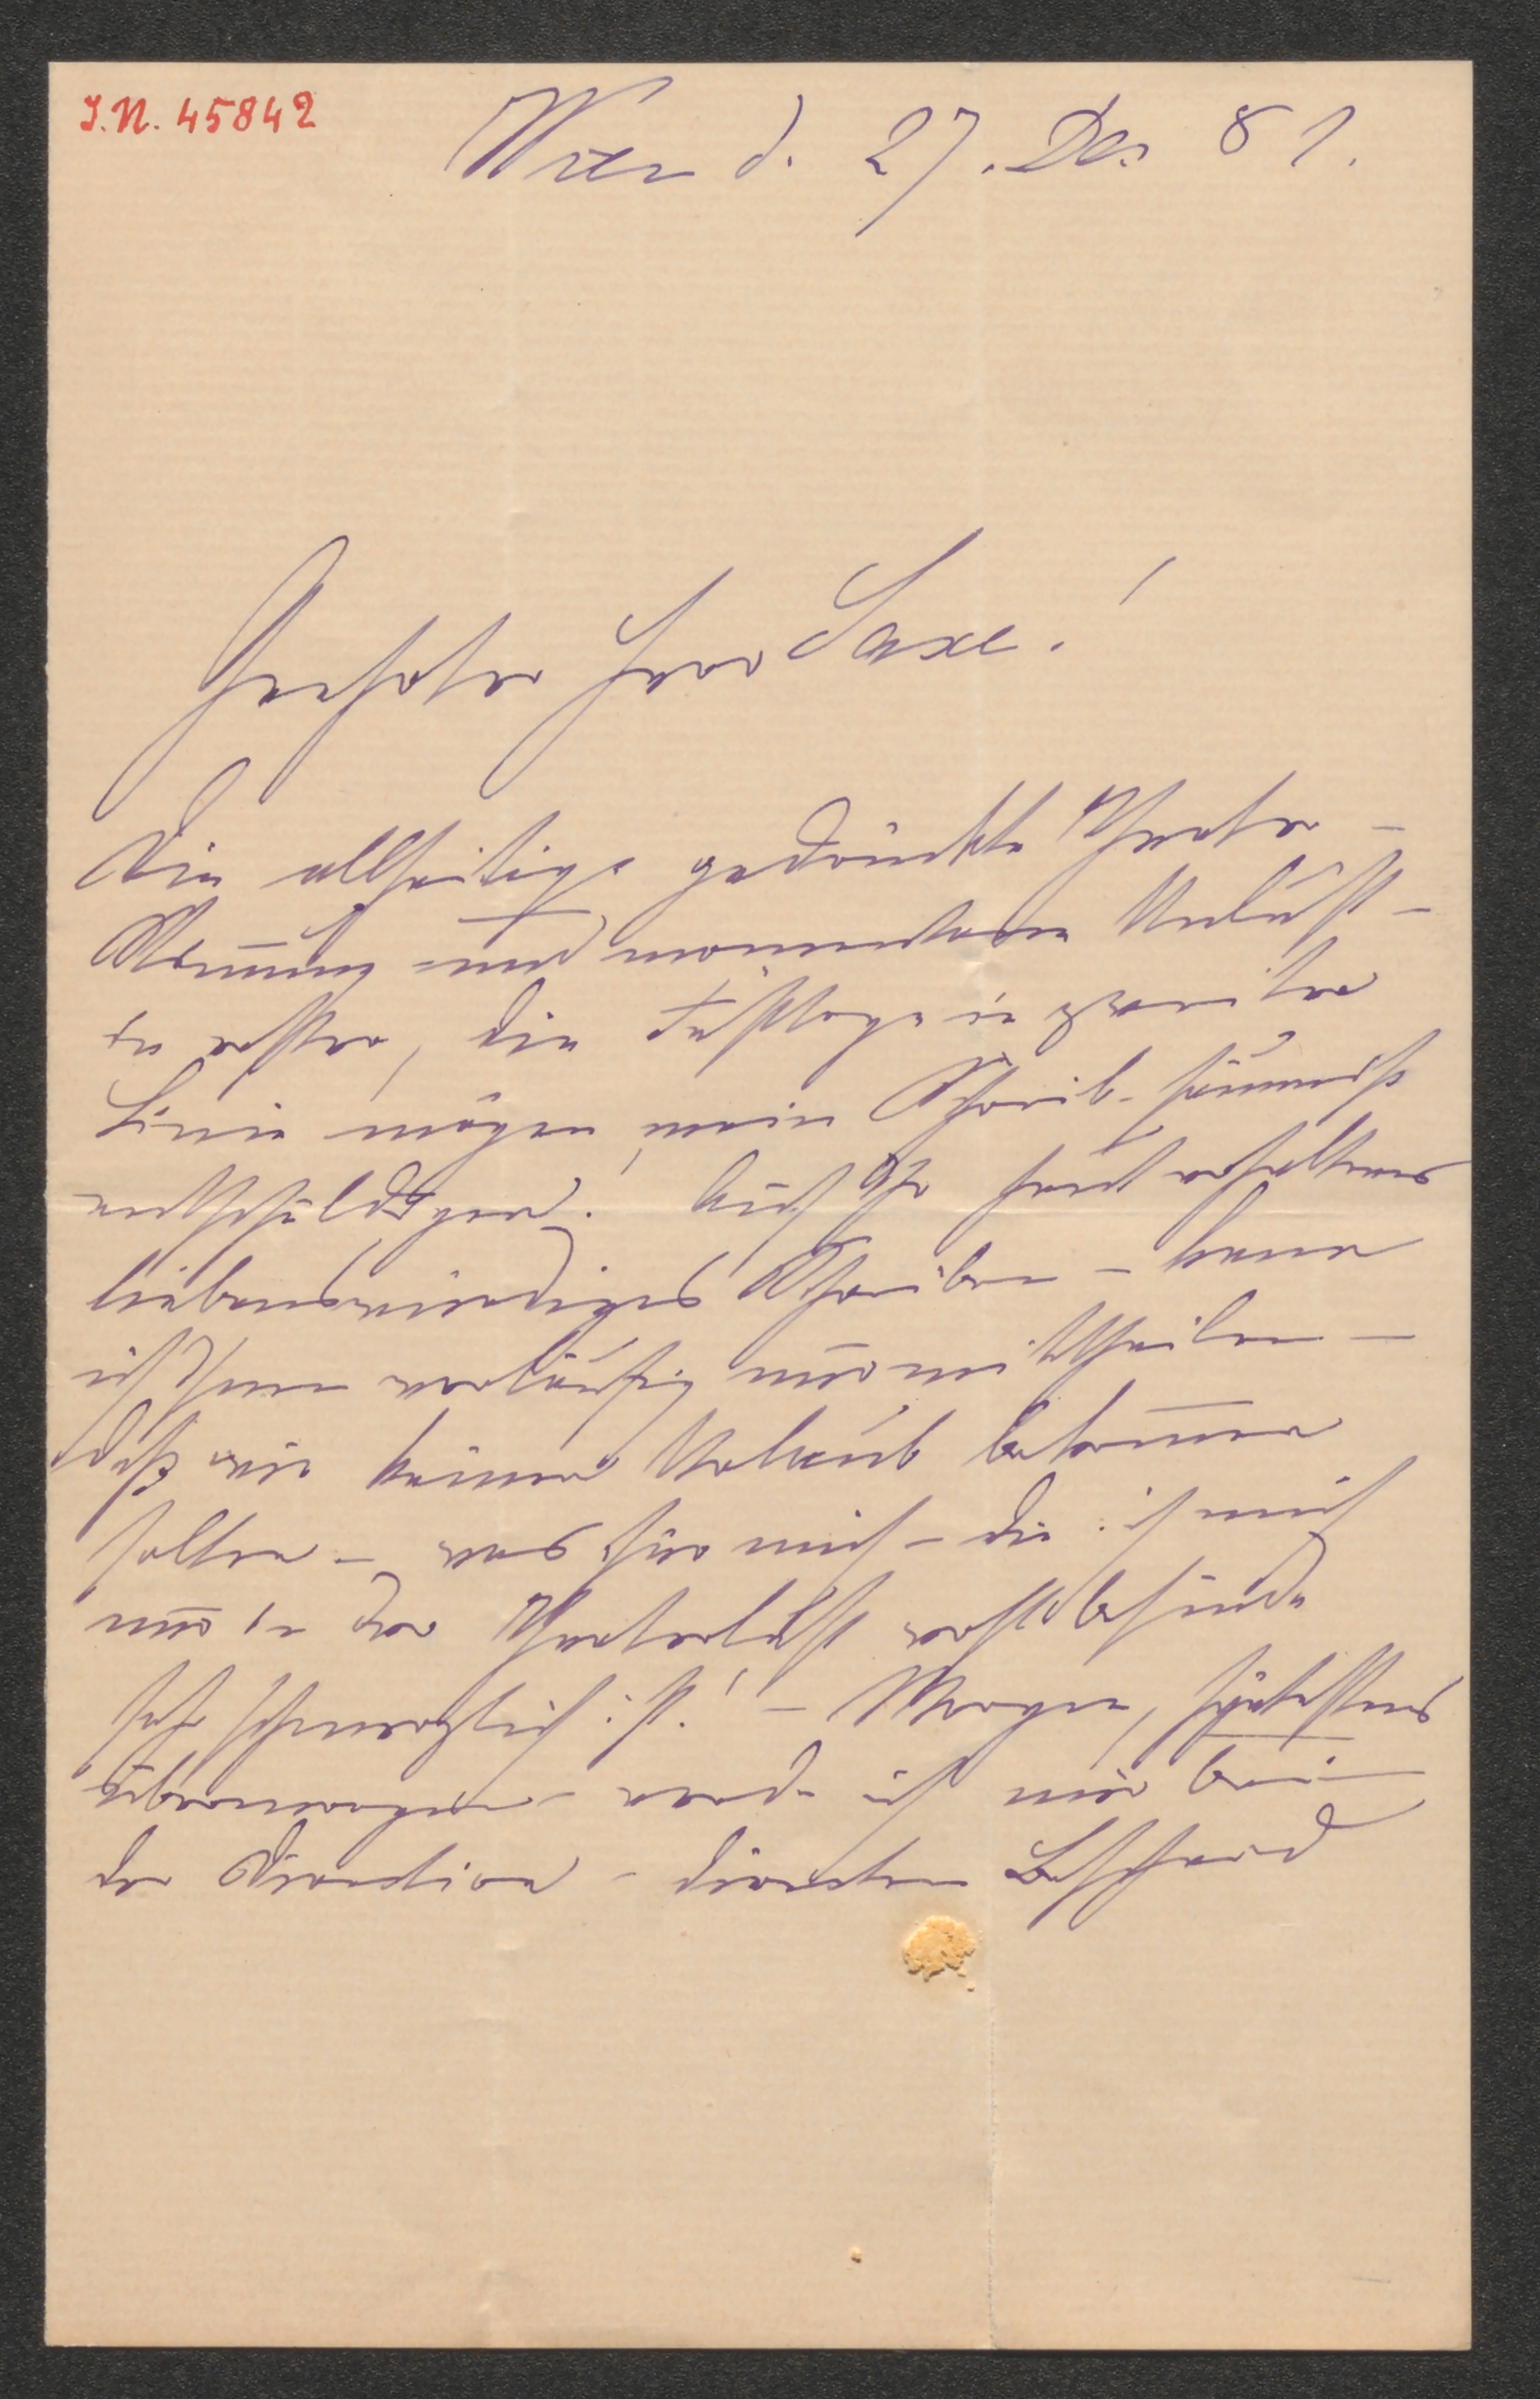 I.N. 45842
Wien d. 27. Dez 81.
Geehrter Herr Saxe!
Die allseitige gedrückte Theater-
Stimmung und momentane Unlust
in erster, die Festtage in zweiter
Linie mögen mein Schreib-säumniß
entschuldigen! Auf Ihr heut erhaltenes
liebenswürdiges Schreiben – kann
ich Ihnen vorläufig nur mittheilen –
daß wir keinen Urlaub bekommen
sollen – was für mich – die ich mich
nur in der Theaterluft wohl befinde
sehr schmerzlich ist! – Morgen, spätestens
übermorgen – werde ich mir bei
der Direction – directen Bescheid